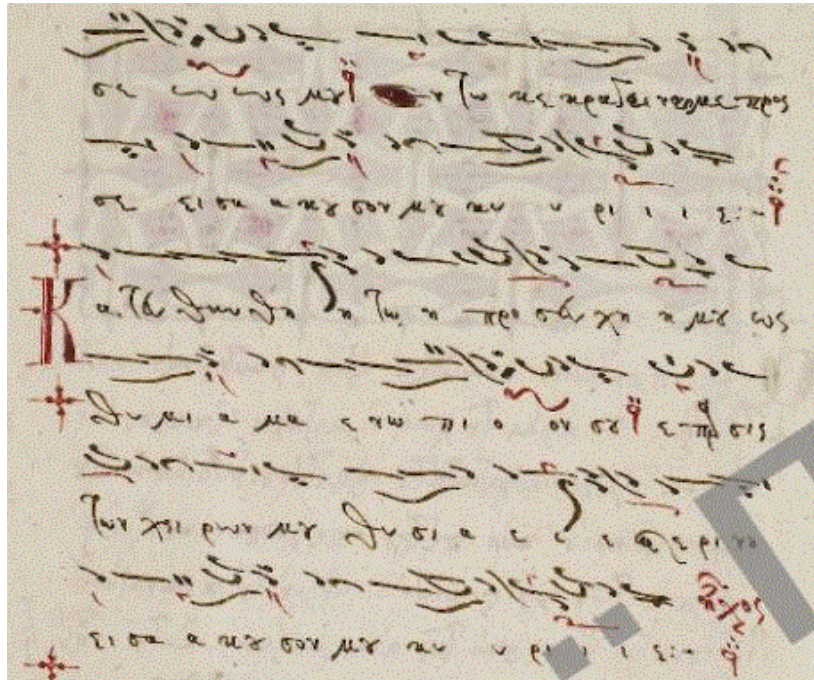 σε ω ω ως μου ν τω κε κραγεναι με προς
σε ει σα α κου σον μου κυ υ ρι ι ι ε:-
Κ α τευ θυν θη η τω η προ σευ χη η μου ως
θυ μι α μα ε νω πι ο ον σου ε παρ σις
των χει ρων μου θυ σι α ε ε ε σπε ρι
ει σα α κου σον μου κυ υ ρι ι ι ε:-